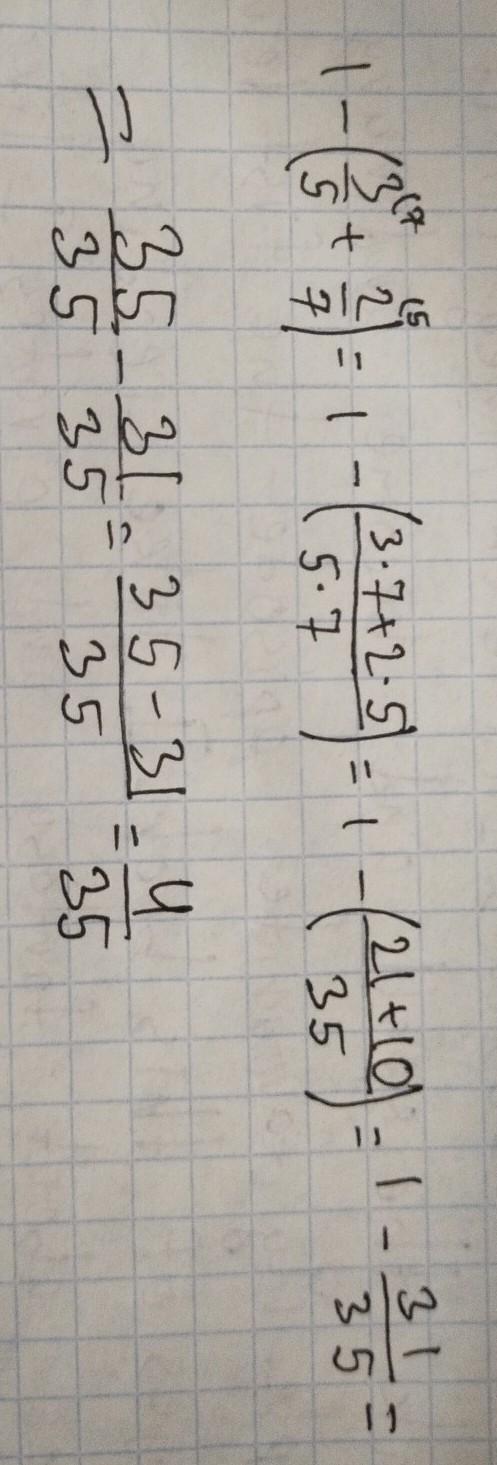 1 - (3⁽⁷/5 + 2⁽⁵/7) = 1 - (3·7+2·5/5·7) = 1 - (21+10/35) = 1 - 31/35 =
= 35/35 - 31/35 = 35-31/35 = 4/35